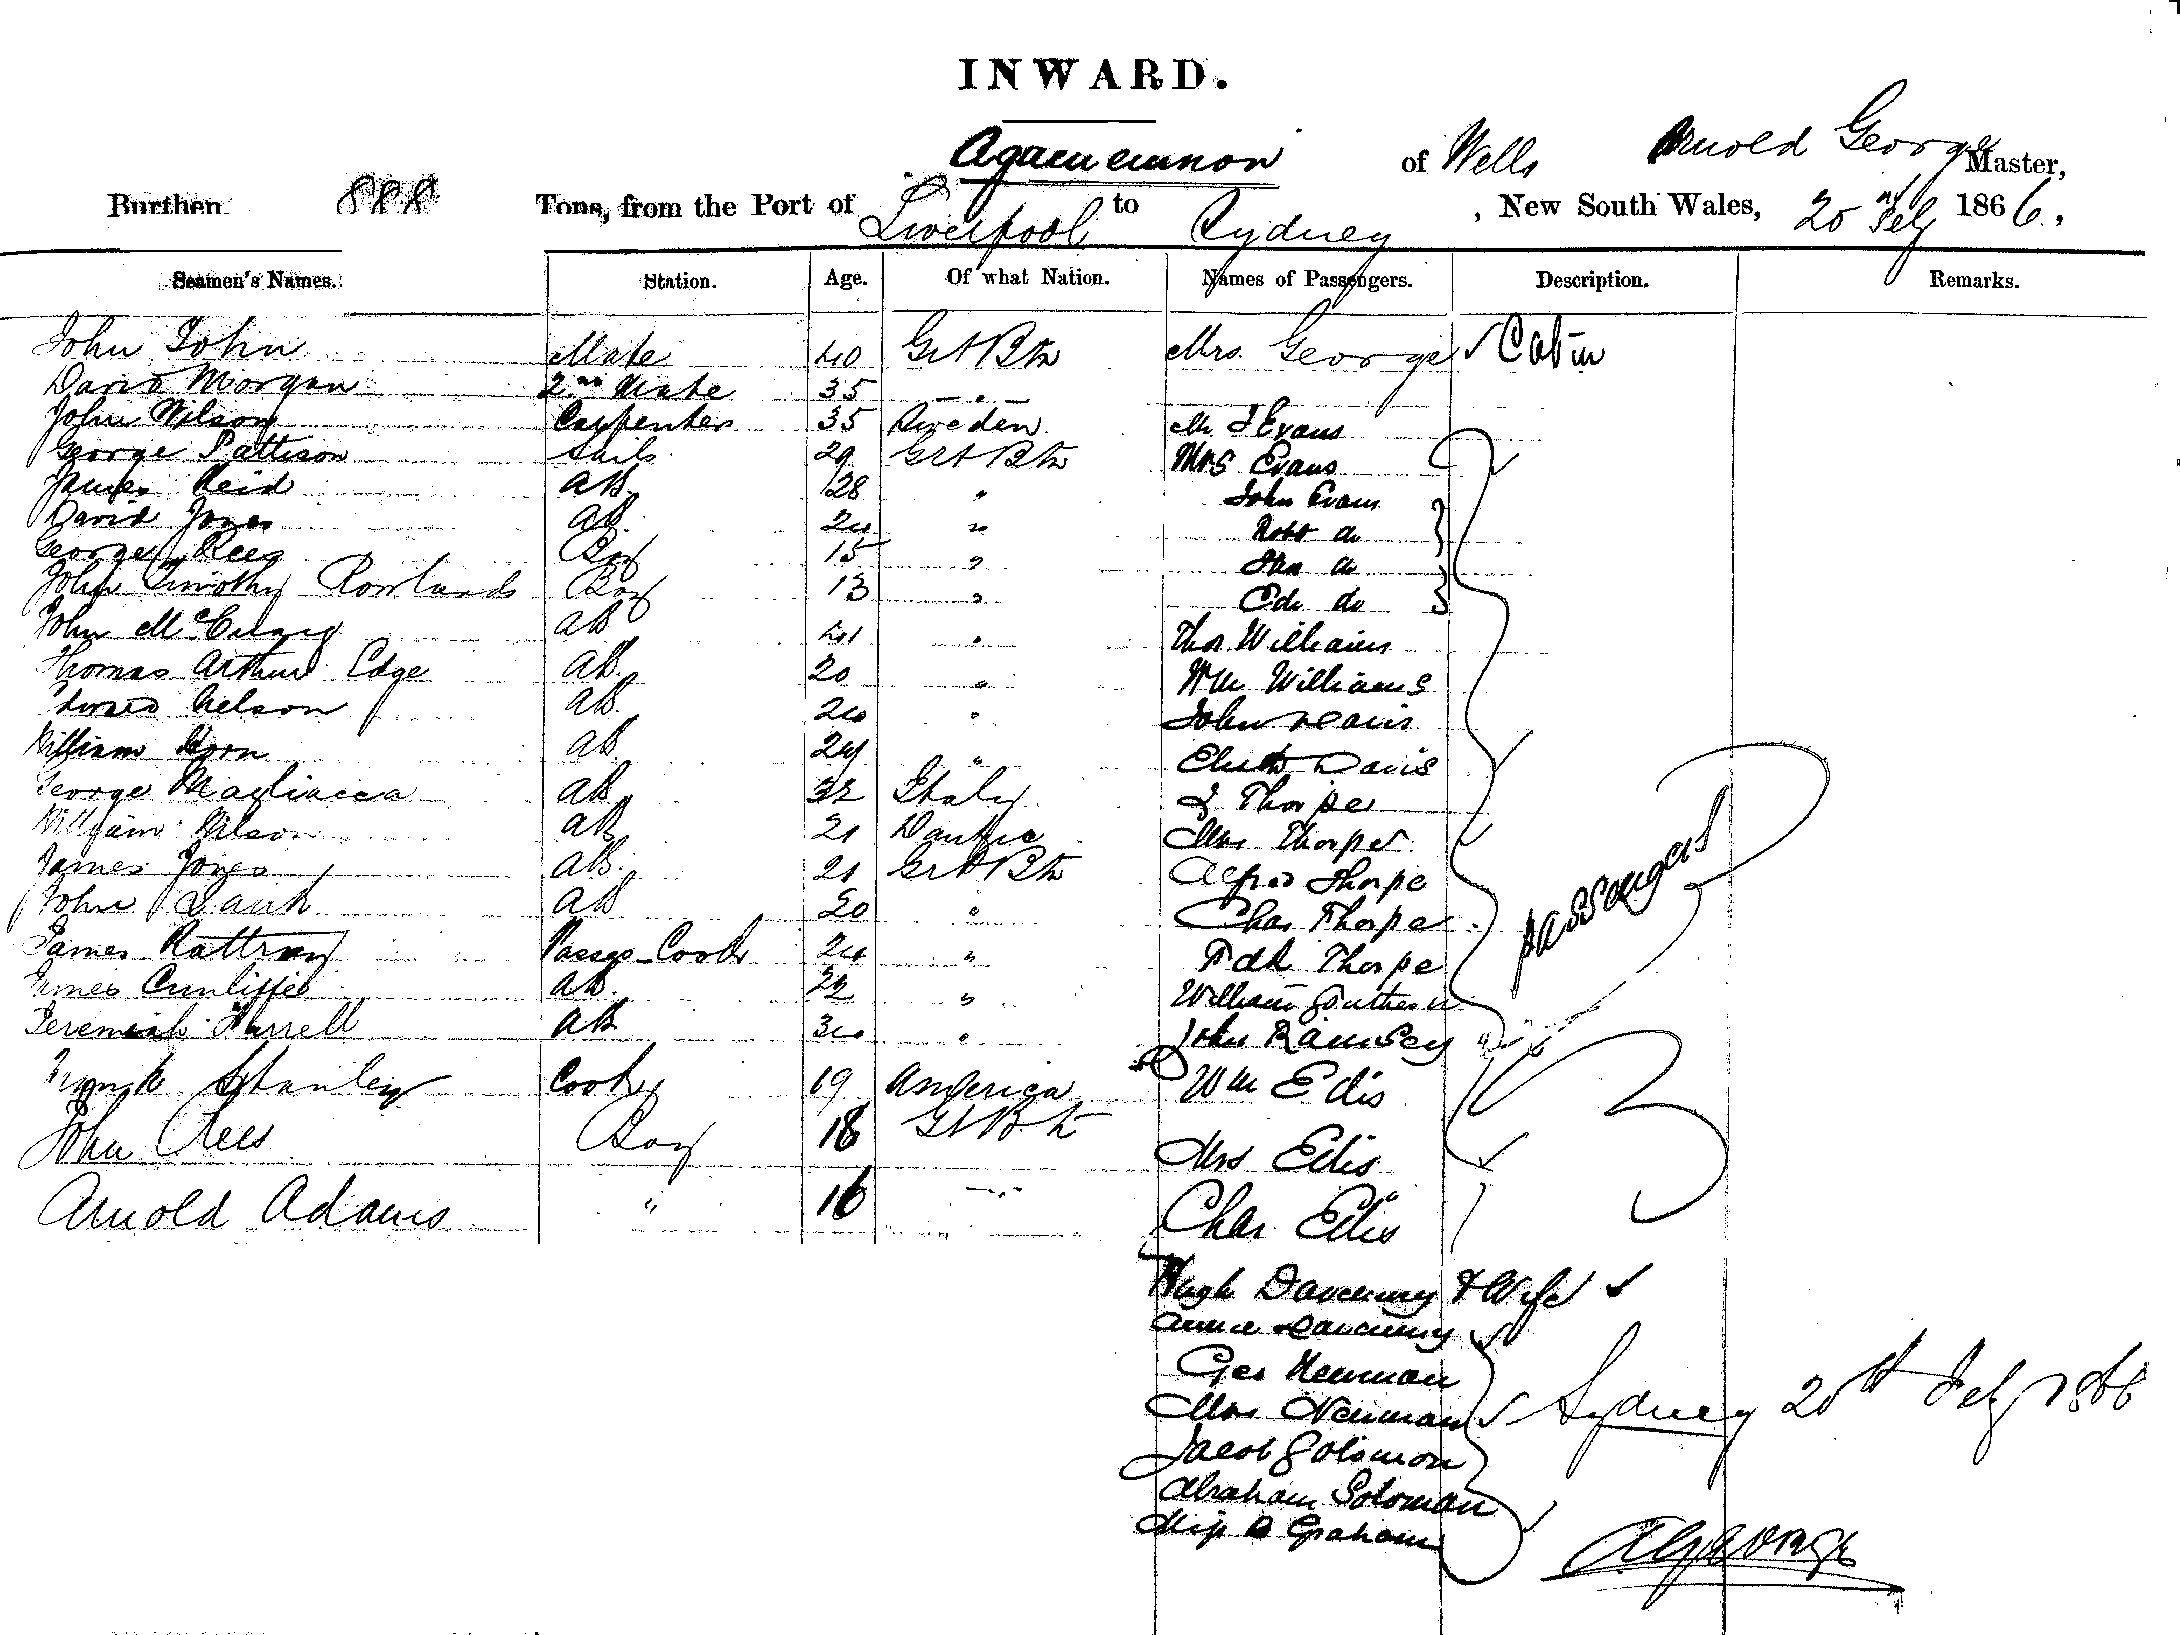 INWARD.
Agamemnon of Wells Arnold George Master,
Burthen 888 Tons, from the Port of Liverpool to Sydney , New South Wales, 20th Feby 1866.
Seamen's Names. Station. Age. Of what Nation. Names of Passengers. Description. Remarks.
John John Mate 40 Grt Btn Mrs. George ✓ Cabin
David Morgan 2nd Mate 35 "
John Nilson Carpenter 35 Sweden Mr J Evans
George Pattison Sails 29 Grt Btn Mrs Evans
James Reid AB 28 " John Evans
David Jones AB 24 " Robt do
George Rees Boy 15 " do
John Timothy Rowlands Boy 13 " Edw do
John McCuaig AB 41 " Thos Williams
Thomas Arthur Edge AB 20 " Wm Williams
Nelson AB 24 " John Davis
William Horn AB 24 " Elizth Davis
George Magliacca AB 32 Italy J Thorpe
William Nilson AB 21 Mrs Thorpe
James Jones AB 21 Grt Btn Alfred Thorpe
John AB 20 " Chas Thorpe
James Rattray Passgs Cook 24 " Fdk Thorpe
James Cunliffe AB 22 " William
Jeremiah Farrell AB 34 " John Ramsey
passengers
Frank Stanley Cook 19 America Wm Edis
John Rees Boy 18 Gt Btn Mrs Edis
Arnold Adams " 16 " Chas Edis
Hugh Daveney & Wife ✓
Annie Daveney
Geo Newman
Mrs Newman Sydney 20th Feby 1866
Jacob Solomon
Abraham Soloman
Miss Graham
A George